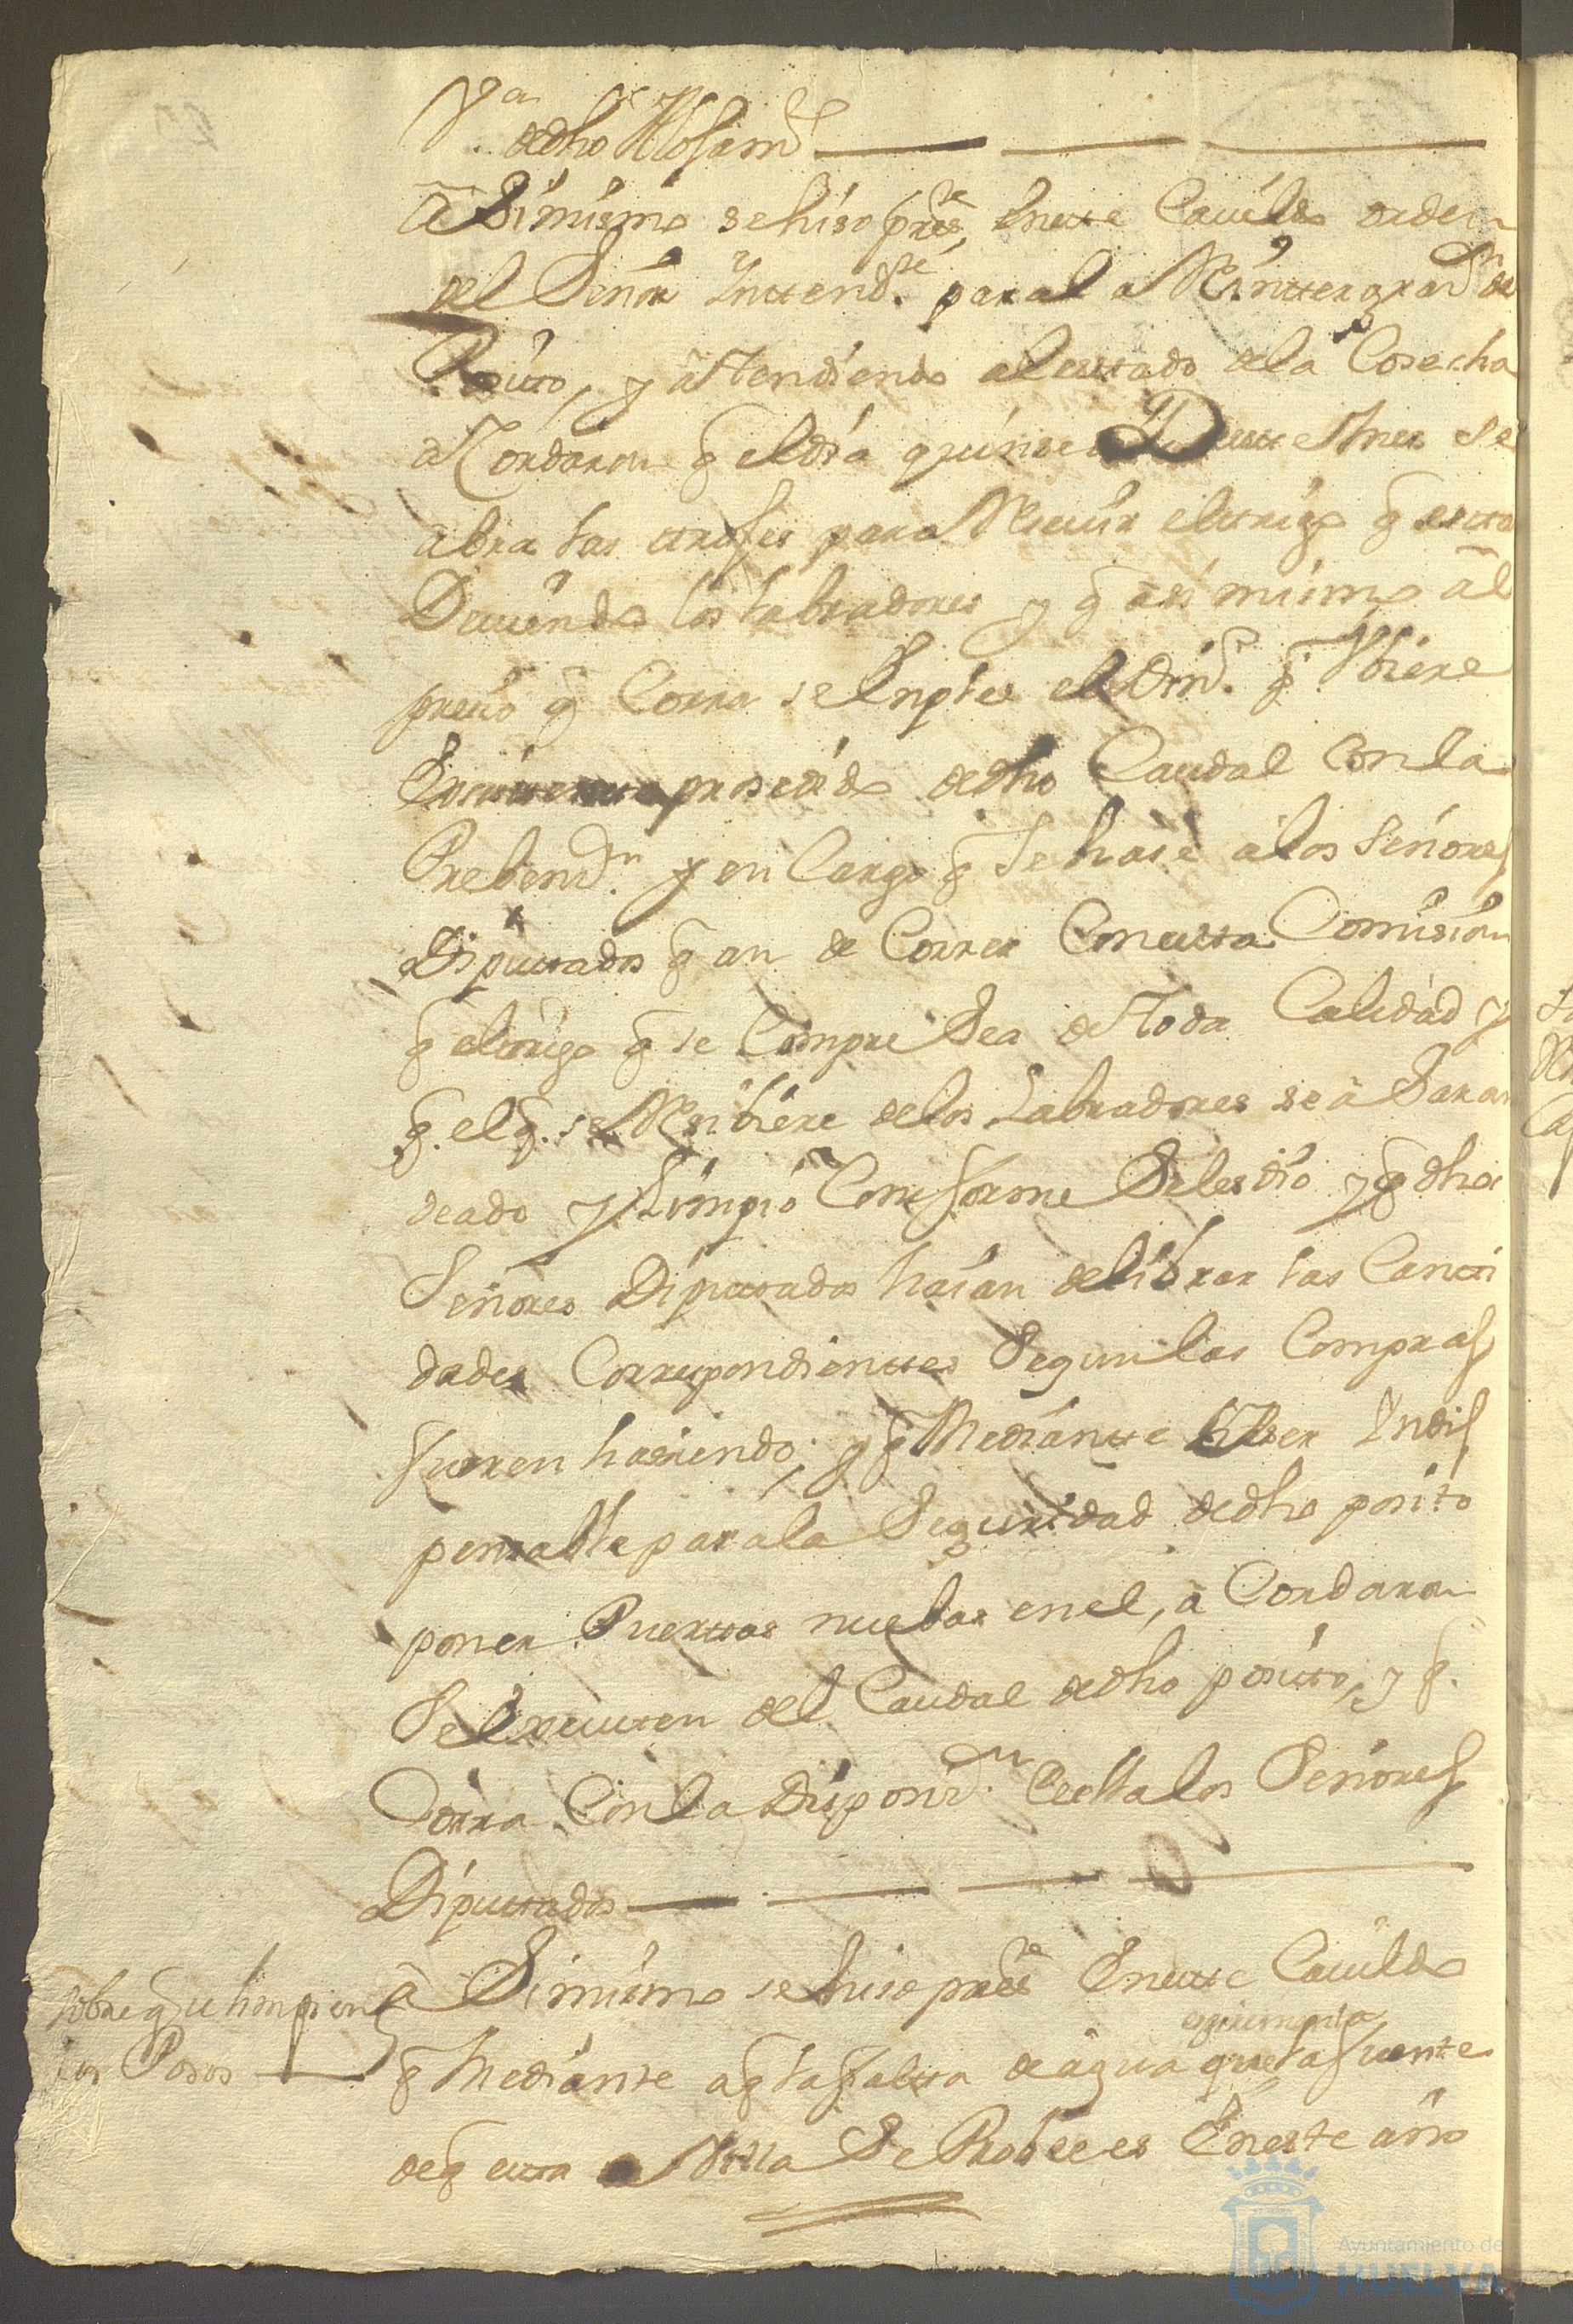 V.ª
dedho Alojamto
âSimismo sehiso preste, Eneste Cavildo orden
del Señor Yntendte. parala Reinttegrasn de
Posito, y âttendiendo alesttado dela Cosecha
aCordaron q̃ eldia quinse Deestte Mes se
abra las troxes para Resivir eltrigo q̃ estta
Deviendo los labradores y q̃ asi mismo âl
presio q̃ Corra se Enplee el Dinº. q̃ Vbiere
prosedido dedho Caudal Conla
Prebensn. y en Cargo q̃ Se hase âlos Señores
Diputtados q̃ an de Correr Conestta Comision
q̃ eltrigo q̃ se Compre Sea deToda Calidad y
q̃. elq̃. se Resibiere delos Labradores se â Saran
deado y Limpio Comforme Selesdio y q̃ dhos
Señores Diputtados haian delibrar las Canti
dades Correspondienttes Segun las Compras
fueren hasiendo; y q̃ Mediantte El ser Yndis
pensable parala Seguridad dedho posito
poner Puerttas nuebas enel, âCordaron
Se Executten del Caudal dedho positto, y q̃.
Corra Conla Disposisn. deella los Señores
Diputtados
Sobre q̃ se limpien
los Posos
â Simismo se hiso preste Enestte Cavildo
q̃ Mediante aq̃ la faltta de agua que
esperimenta
la fuente
deq̃ estta Villa Se Probee es Eneste año
Ayuntamiento de
HUELVA